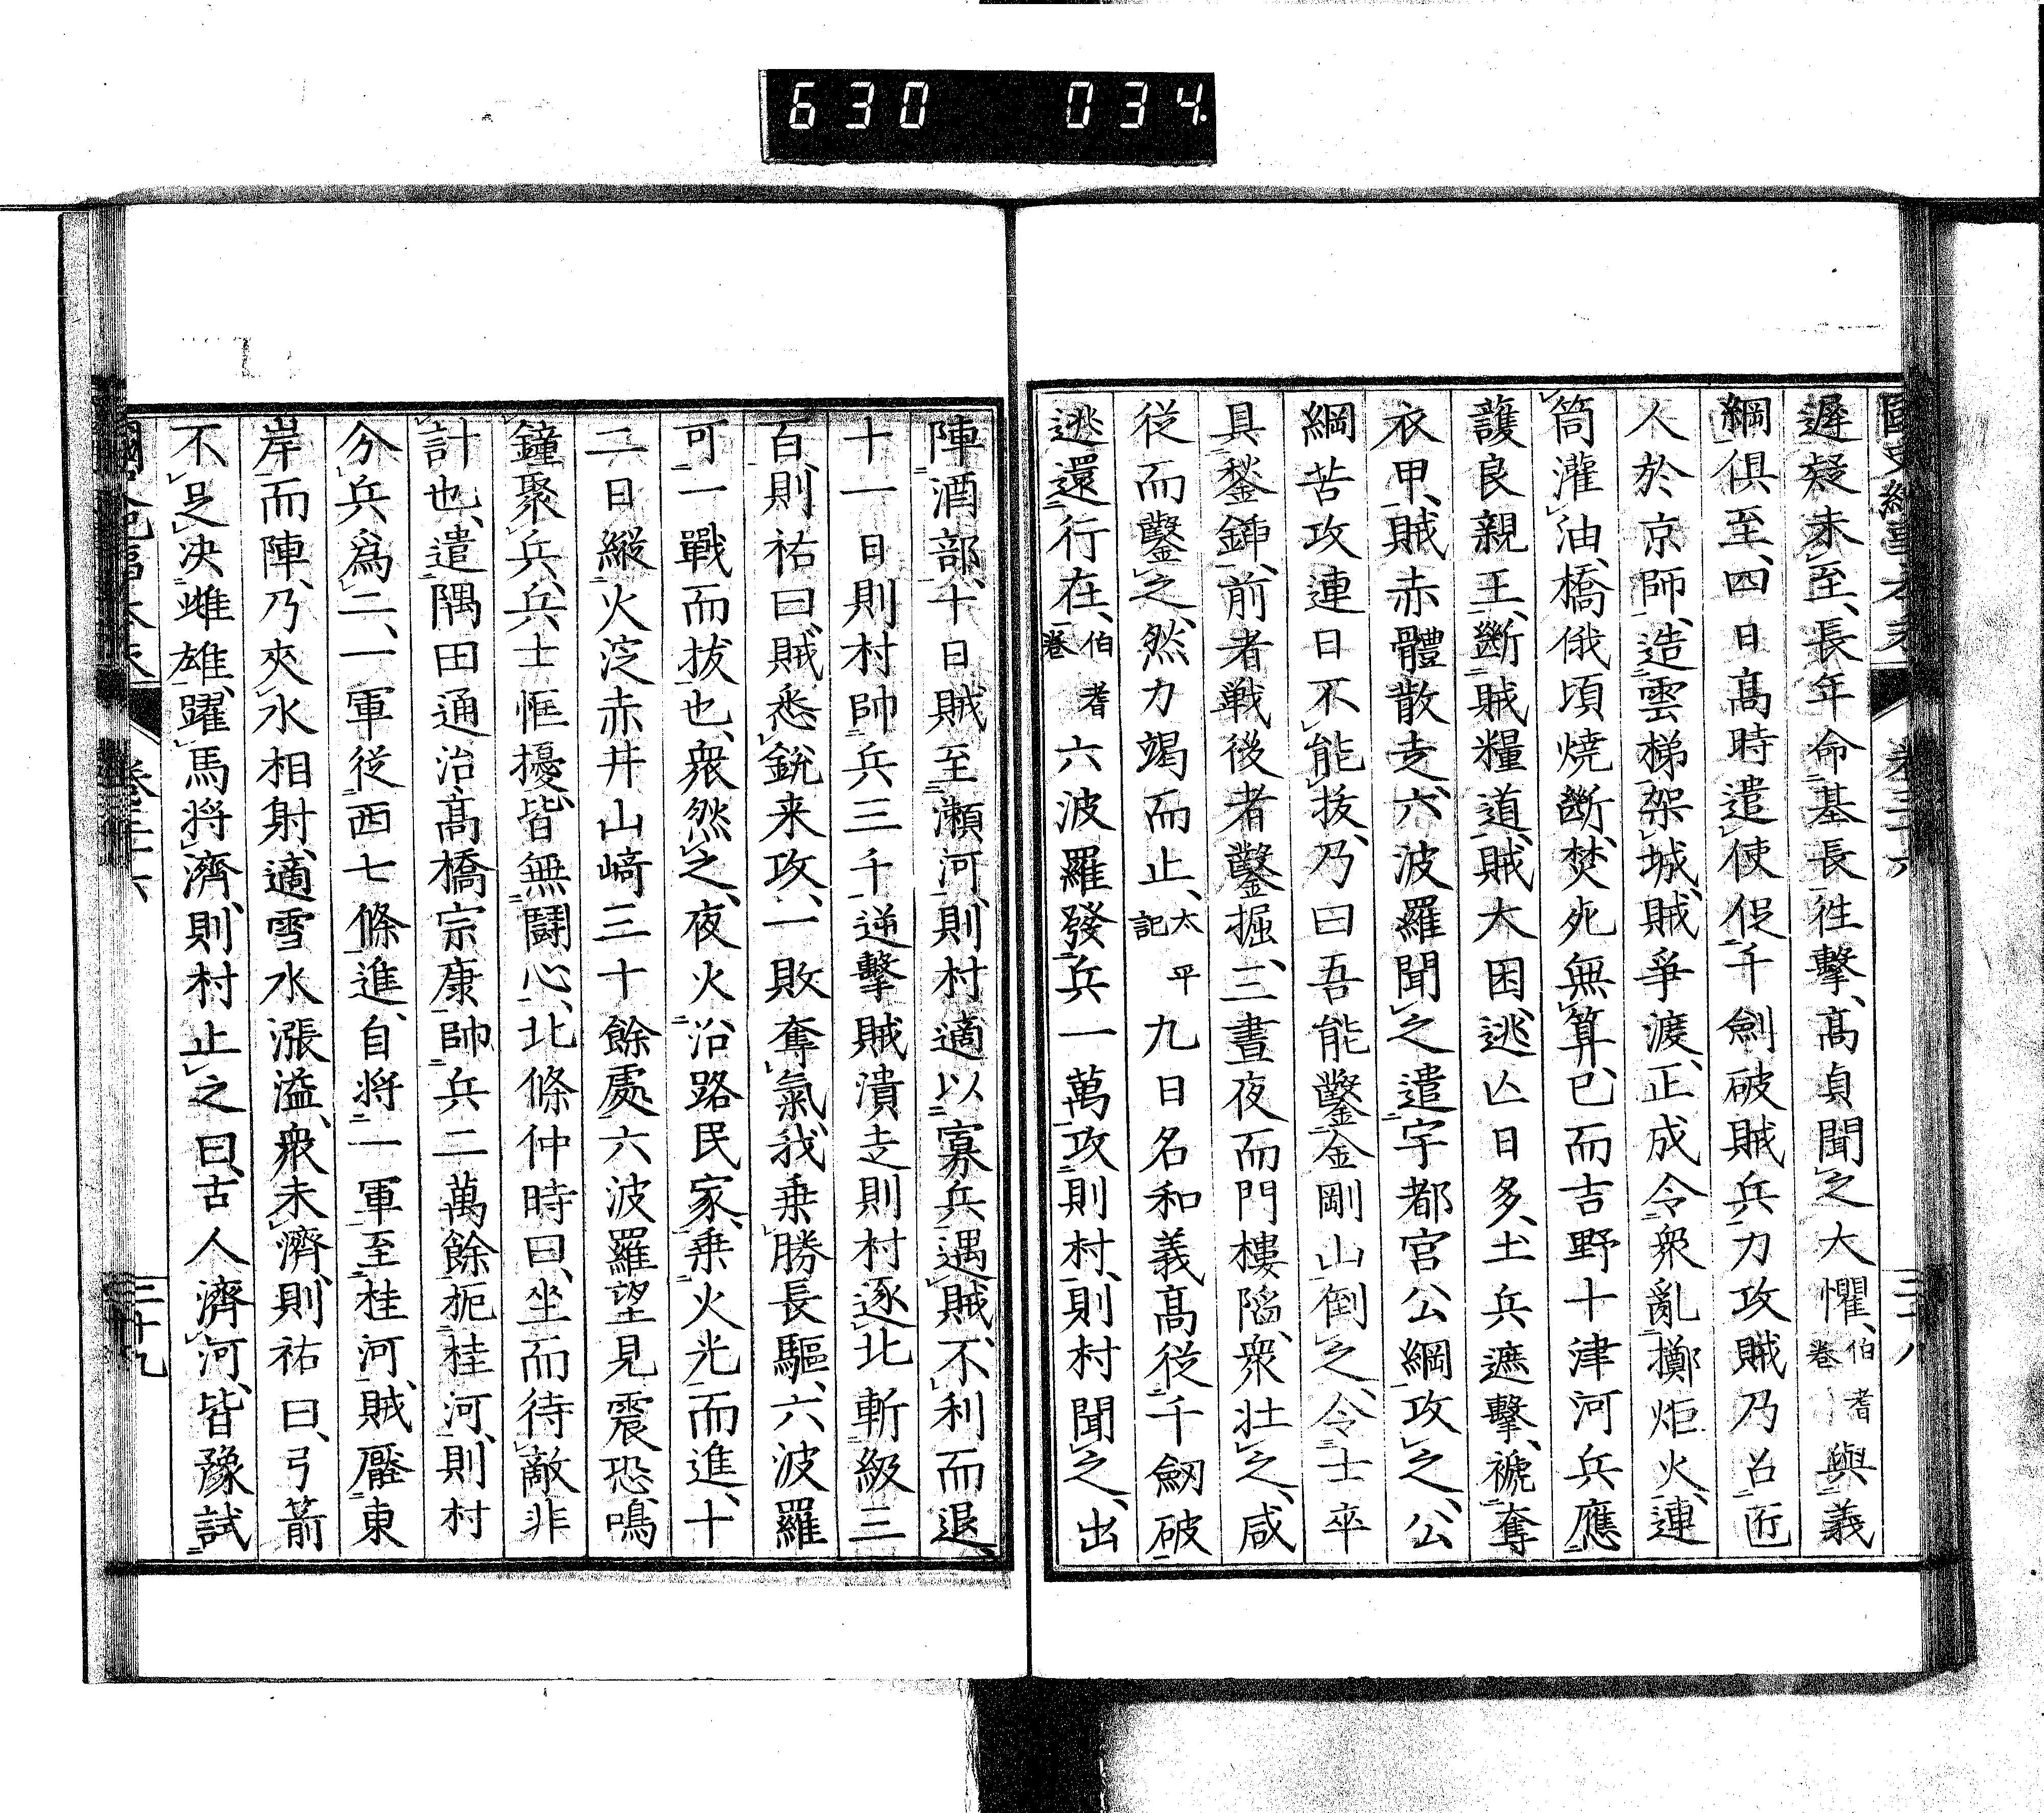 630 034
遲疑未至、長年命基長徃擊、髙貞聞之大懼、伯耆卷與義
綱俱至、四日髙時遣使促千劍破賊兵力攻賊乃召匠
人於京師、造雲梯架城、賊爭渡、正成令衆亂擲炬火、連
筒灌油、橋俄頃燒斷、焚死無算、已而吉野十津河兵應
護良親王、斷賊糧道、賊大困、逃亾日多、土兵遮擊、褫奪
衣甲、賊赤體散走、六波羅聞之遣宇都宮公綱攻之、公
綱苦攻連日不能抜、乃曰吾能鑿金剛山倒之、令士卒
具鍫鍤、前者戦後者鑿掘、三晝夜而門樓陷、衆壮之、咸
従而鑿之、然力竭而止、太平記九日名和義髙従千劒破
逃還行在、伯耆卷六波羅發兵一萬攻則村、則村聞之、出
陣酒部、十日賊至瀬河、則村適以寡兵遇賊、不利而退、
十一日則村帥兵三千逆擊賊潰走則村逐北斬級三
百、則祐曰、賊悉銳来攻、一敗奪氣、我乗勝長驅、六波羅
可一戰而拔也、衆然之、夜火沿路民家、乗火光而進、十
二日縱火淀赤井山﨑三十餘處六波羅望見震恐、鳴
鐘聚兵、兵士恇擾、皆無鬪心、北條仲時曰、坐而待敵非
計也、遣隅田通治髙橋宗康帥兵二萬餘扼桂河、則村
分兵爲二、一軍従西七條進、自将一軍至桂河、賊壓東
岸而陣、乃夾水相射、適雪水漲溢、衆未濟、則祐曰、弓箭
不足决雌雄、躍馬将濟、則村止之曰、古人濟河、皆豫試
卷三十六
三十九